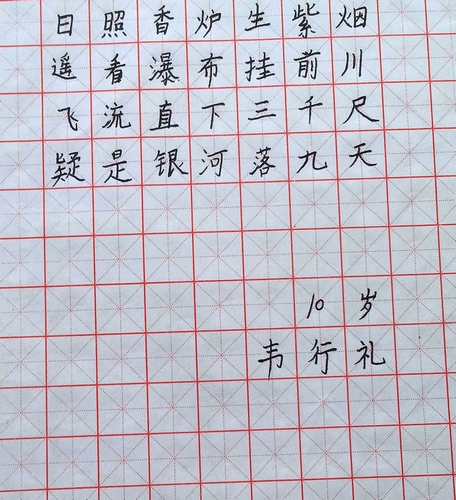 日照香炉生紫烟
遥看瀑布挂前川
飞流直下三千尺
疑是银河落九天
10岁
韦行礼